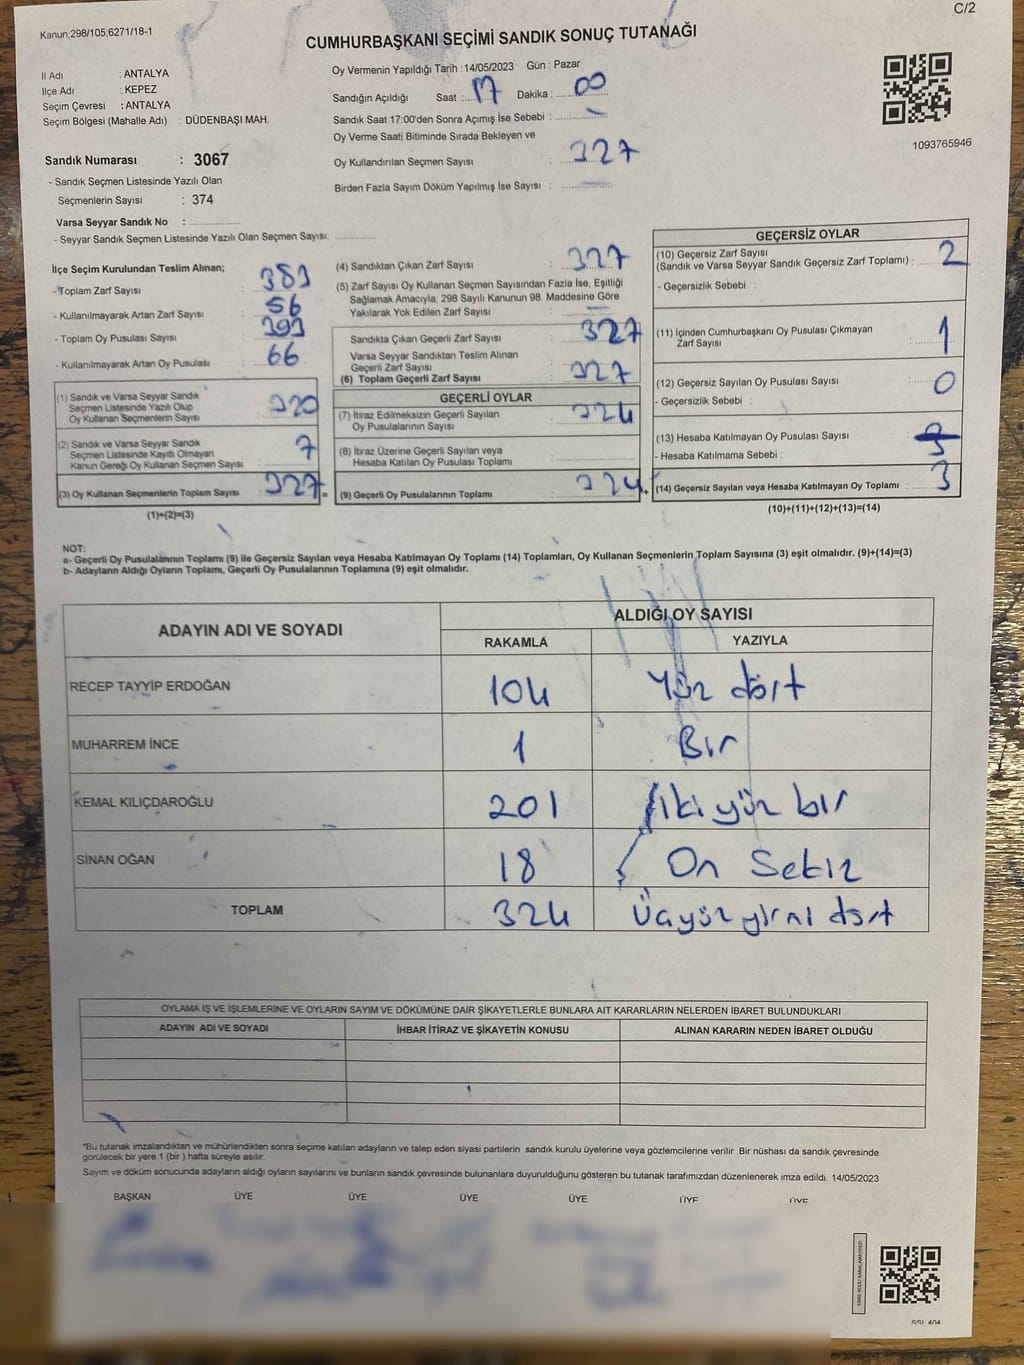 C/2
Kanun;298/105;6271/18-1
CUMHURBAŞKANI SEÇİMİ SANDIK SONUÇ TUTANAĞI
İl Adı : ANTALYA
İlçe Adı : KEPEZ
Seçim Çevresi : ANTALYA
Seçim Bölgesi (Mahalle Adı) : DÜDENBAŞI MAH.
Oy Vermenin Yapıldığı Tarih :14/05/2023 Gün : Pazar
Sandığın Açıldığı Saat : 17 Dakika : 00
Sandık Saat 17:00'den Sonra Açımış İse Sebebi :
Oy Verme Saati Bitiminde Sırada Bekleyen ve
Oy Kullandırılan Seçmen Sayısı : 327
Birden Fazla Sayım Döküm Yapılmış İse Sayısı :
1093765946
Sandık Numarası : 3067
- Sandık Seçmen Listesinde Yazılı Olan
Seçmenlerin Sayısı : 374
Varsa Seyyar Sandık No :
- Seyyar Sandık Seçmen Listesinde Yazılı Olan Seçmen Sayısı:
İlçe Seçim Kurulundan Teslim Alınan;
- Toplam Zarf Sayısı : 383
- Kullanılmayarak Artan Zarf Sayısı : 56
- Toplam Oy Pusulası Sayısı : 393
- Kullanılmayarak Artan Oy Pusulası : 66
(1) Sandık ve Varsa Seyyar Sandık
Seçmen Listesinde Yazılı Olup
Oy Kullanan Seçmenlerin Sayısı : 320
(2) Sandık ve Varsa Seyyar Sandık
Seçmen Listesinde Kayıtlı Olmayan
Kanun Gereği Oy Kullanan Seçmen Sayısı : 7
(3) Oy Kullanan Seçmenlerin Toplam Sayısı : 327 =
(1)+(2)=(3)
(4) Sandıktan Çıkan Zarf Sayısı : 327
(5) Zarf Sayısı Oy Kullanan Seçmen Sayısından Fazla İse, Eşitliği
Sağlamak Amacıyla; 298 Sayılı Kanunun 98. Maddesine Göre
Yakılarak Yok Edilen Zarf Sayısı :
Sandıkta Çıkan Geçerli Zarf Sayısı : 327
Varsa Seyyar Sandıktan Teslim Alınan
Geçerli Zarf Sayısı :
(6) Toplam Geçerli Zarf Sayısı : 327
GEÇERLİ OYLAR
(7) İtiraz Edilmeksizin Geçerli Sayılan
Oy Pusulalarının Sayısı : 324
(8) İtiraz Üzerine Geçerli Sayılan veya
Hesaba Katılan Oy Pusulası Toplamı :
(9) Geçerli Oy Pusulalarının Toplamı : 324 +
GEÇERSİZ OYLAR
(10) Geçersiz Zarf Sayısı
(Sandık ve Varsa Seyyar Sandık Geçersiz Zarf Toplamı) : 2
- Geçersizlik Sebebi :
(11) İçinden Cumhurbaşkanı Oy Pusulası Çıkmayan
Zarf Sayısı : 1
(12) Geçersiz Sayılan Oy Pusulası Sayısı : 0
- Geçersizlik Sebebi :
(13) Hesaba Katılmayan Oy Pusulası Sayısı :
- Hesaba Katılmama Sebebi :
(14) Geçersiz Sayılan veya Hesaba Katılmayan Oy Toplamı : 3
(10)+(11)+(12)+(13)=(14)
NOT:
a- Geçerli Oy Pusulalarının Toplamı (9) ile Geçersiz Sayılan veya Hesaba Katılmayan Oy Toplamı (14) Toplamları, Oy Kullanan Seçmenlerin Toplam Sayısına (3) eşit olmalıdır. (9)+(14)=(3)
b- Adayların Aldığı Oyların Toplamı, Geçerli Oy Pusulalarının Toplamına (9) eşit olmalıdır.
ADAYIN ADI VE SOYADI ALDIĞI OY SAYISI
RAKAMLA YAZIYLA
RECEP TAYYİP ERDOĞAN 104 Yüz dört
MUHARREM İNCE 1 Bir
KEMAL KILIÇDAROĞLU 201 İki yüz bir
SİNAN OĞAN 18 On Sekiz
TOPLAM 324 Üçyüz yirmi dört
OYLAMA İŞ VE İŞLEMLERİNE VE OYLARIN SAYIM VE DÖKÜMÜNE DAİR ŞİKAYETLERLE BUNLARA AİT KARARLARIN NELERDEN İBARET BULUNDUKLARI
ADAYIN ADI VE SOYADI İHBAR İTİRAZ VE ŞİKAYETİN KONUSU ALINAN KARARIN NEDEN İBARET OLDUĞU
*Bu tutanak imzalandıktan ve mühürlendikten sonra seçime katılan adayların ve talep eden siyasi partilerin sandık kurulu üyelerine veya gözlemcilerine verilir .Bir nüshası da sandık çevresinde
görülecek bir yere 1 (bir ) hafta süreyle asılır.
Sayım ve döküm sonucunda adayların aldığı oyların sayılarını ve bunların sandık çevresinde bulunanlara duyurulduğunu gösteren bu tutanak tarafımızdan düzenlenerek imza edildi. 14/05/2023
BAŞKAN ÜYE ÜYE ÜYE ÜYE ÜYE ÜYE